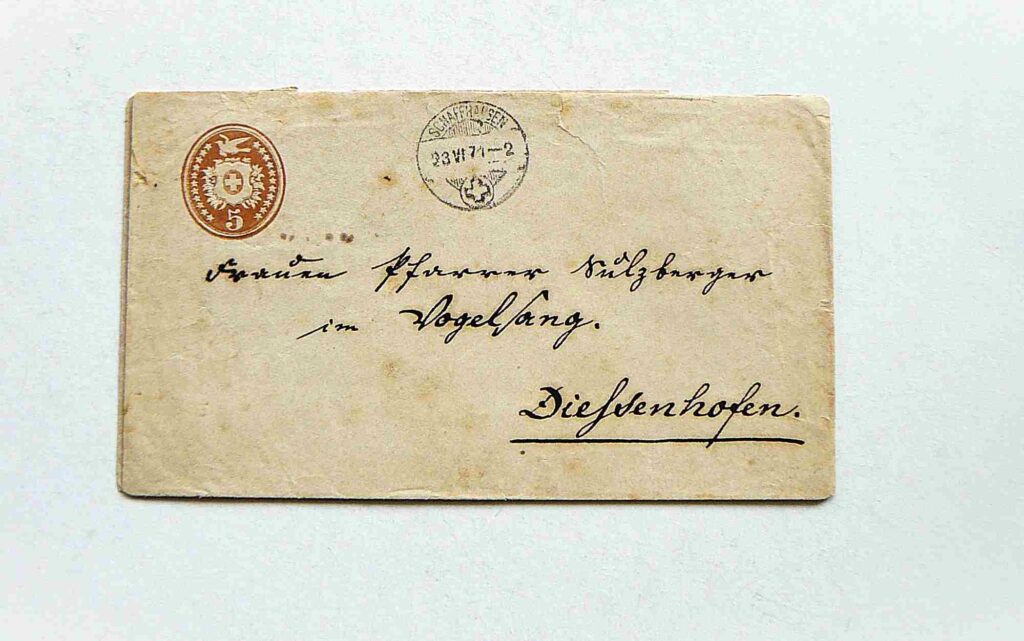 SCHAFFHAUSEN
23 VI 71–2
5
Frauen Pfarrer Sulzberger
im Vogelsang.
Diessenhofen.